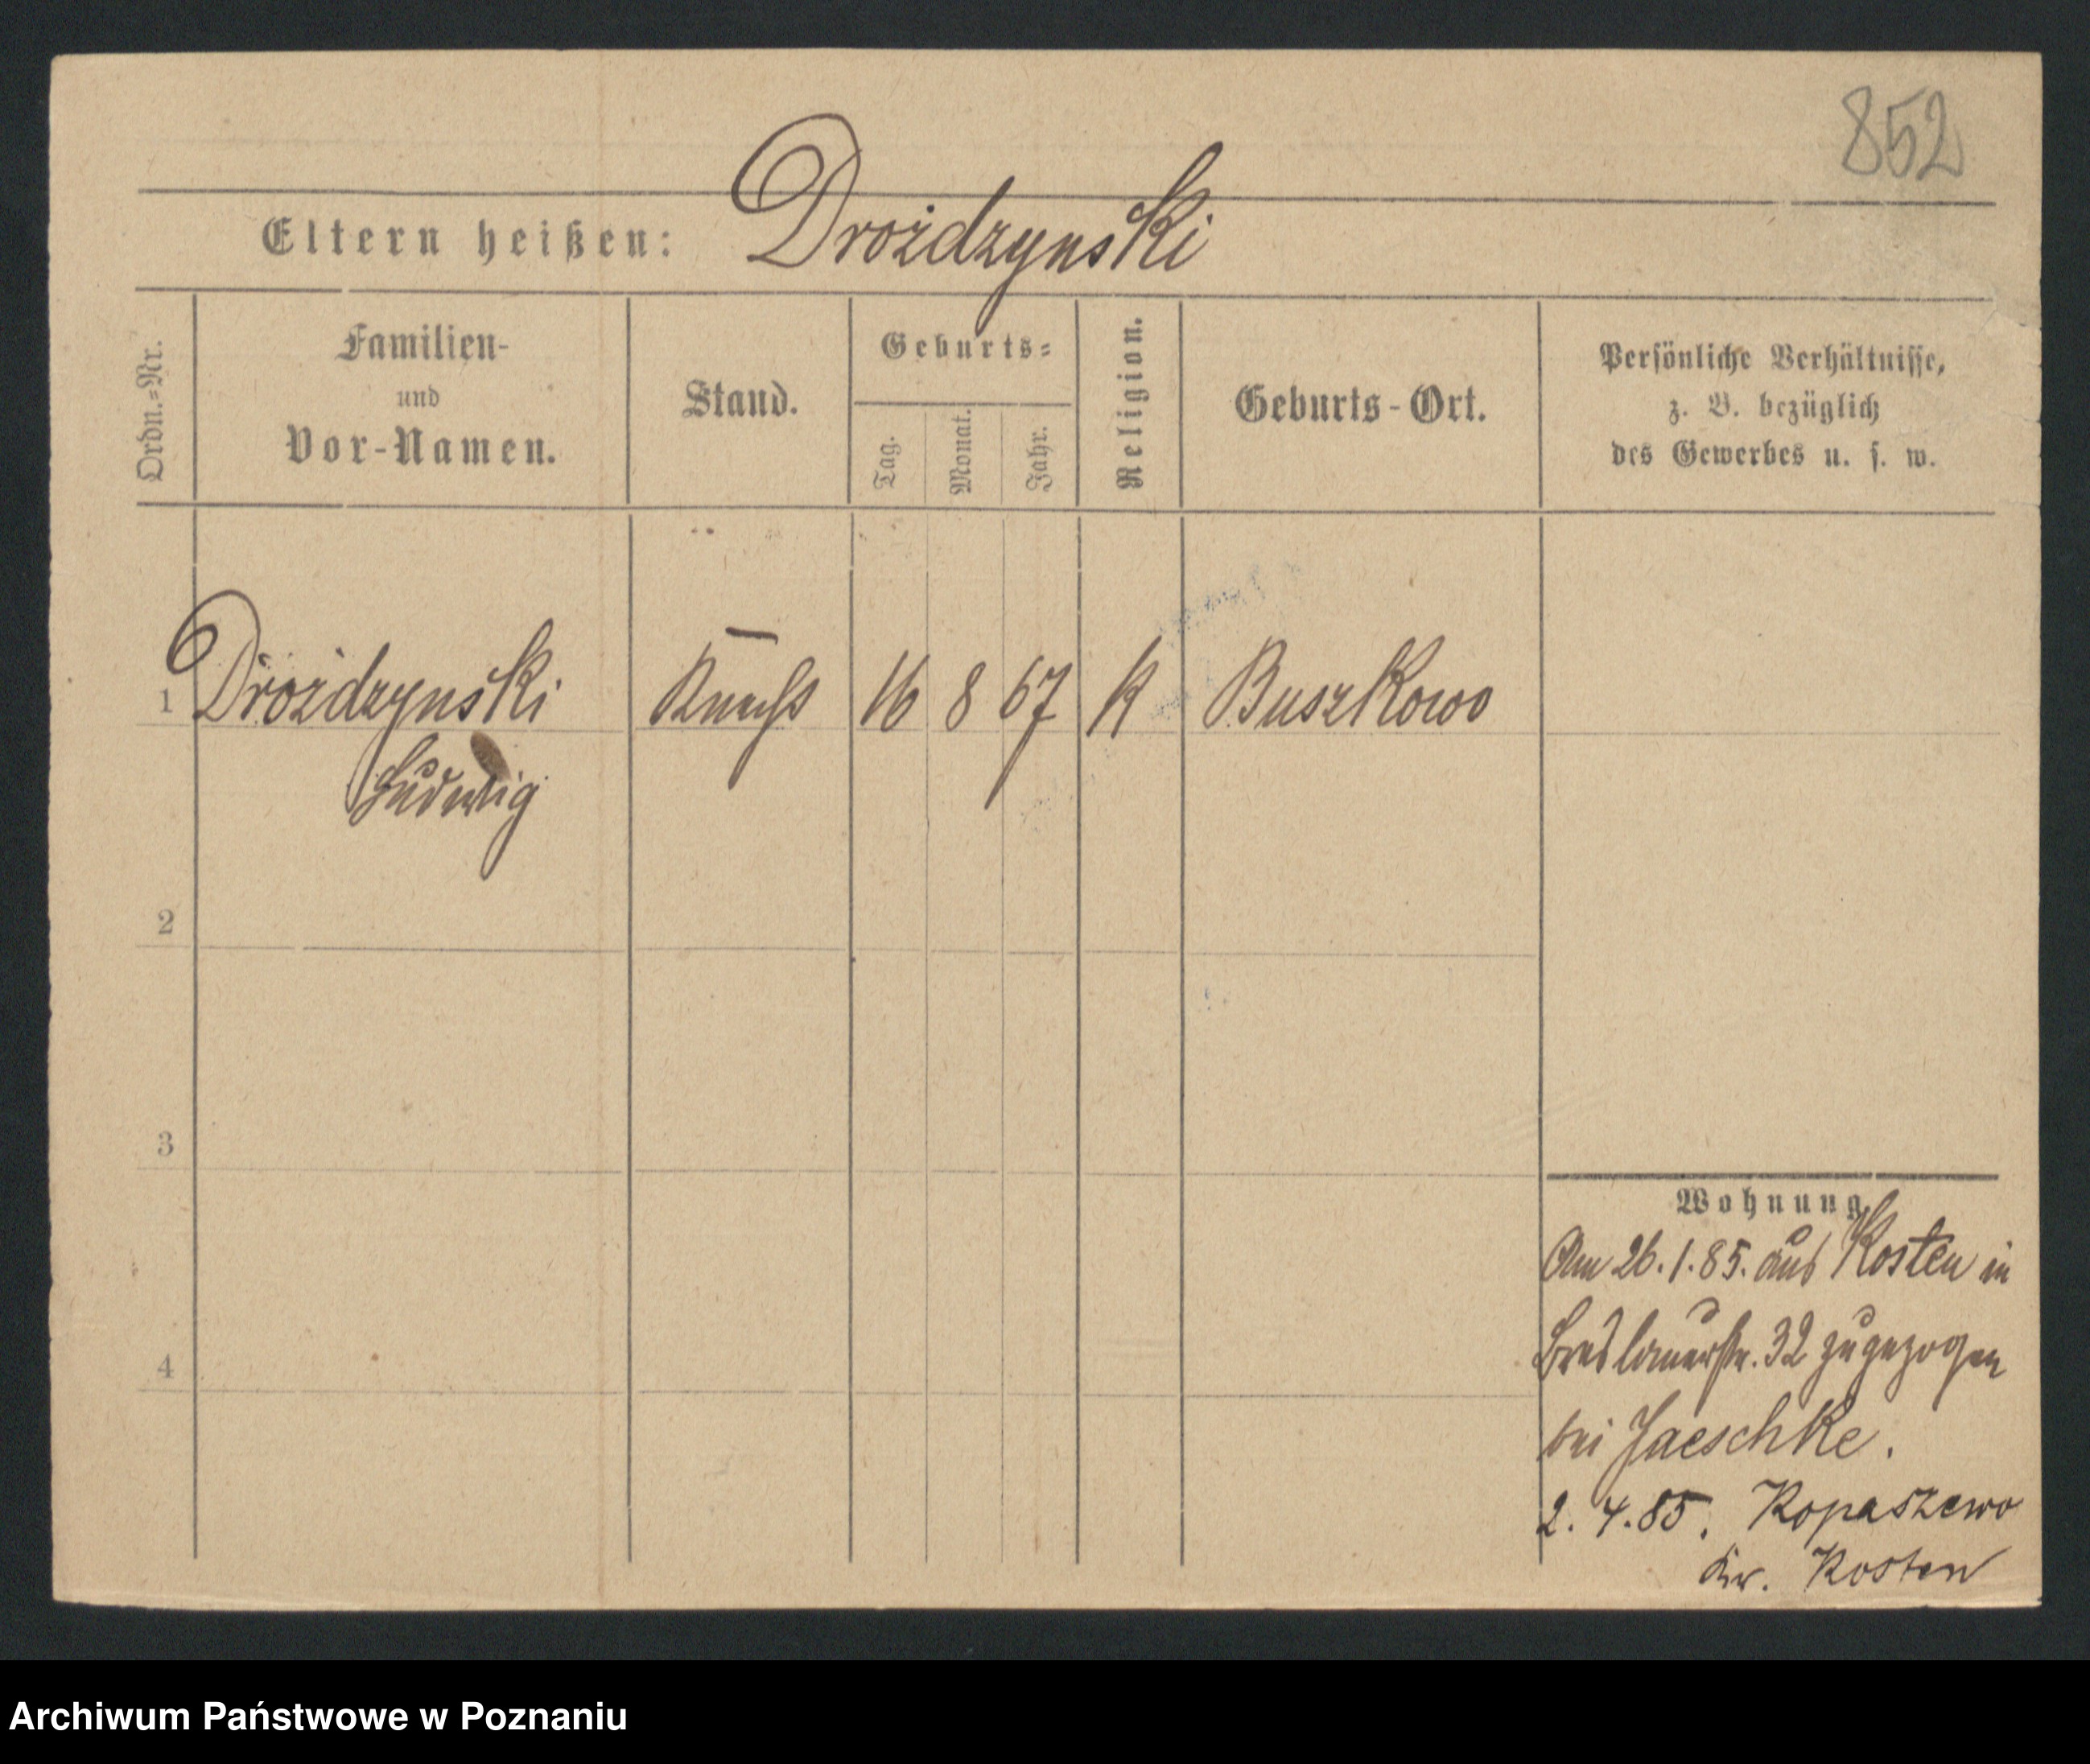 852
Eltern heißen: Drożdzynski
Ordn.-Nr.
Familien-
und
Vor-Namen.
Stand.
Geburts-
Tag.
Monat.
Jahr.
Religion.
Geburts-Ort.
Persönliche Verhältnisse,
z. B. bezüglich
des Gewerbes u. s. w.
1 Drożdzynski Knecht 16 8 67 K Buszkowo
Ludwig
2
3
4
Wohnung
Am 26.1.85. aus Kosten in
Breslauerstr. 32 zugezogen
bei Jaeschke.
2. 4. 85. Kopaszewo
Kr. Kosten
Archiwum Państwowe w Poznaniu